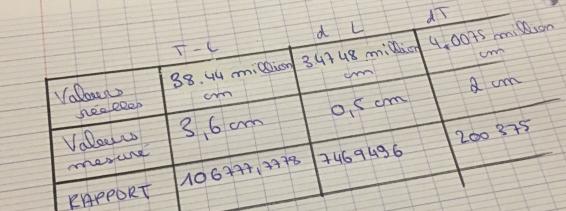 T-L d L dT
Valeurs reelles 38.44 million cm 34748 million cm 4,0075 million cm
Valeurs mesuré 3,6 cm 0,5 cm 2 cm
RAPPORT 106777,7778 7469496 200375